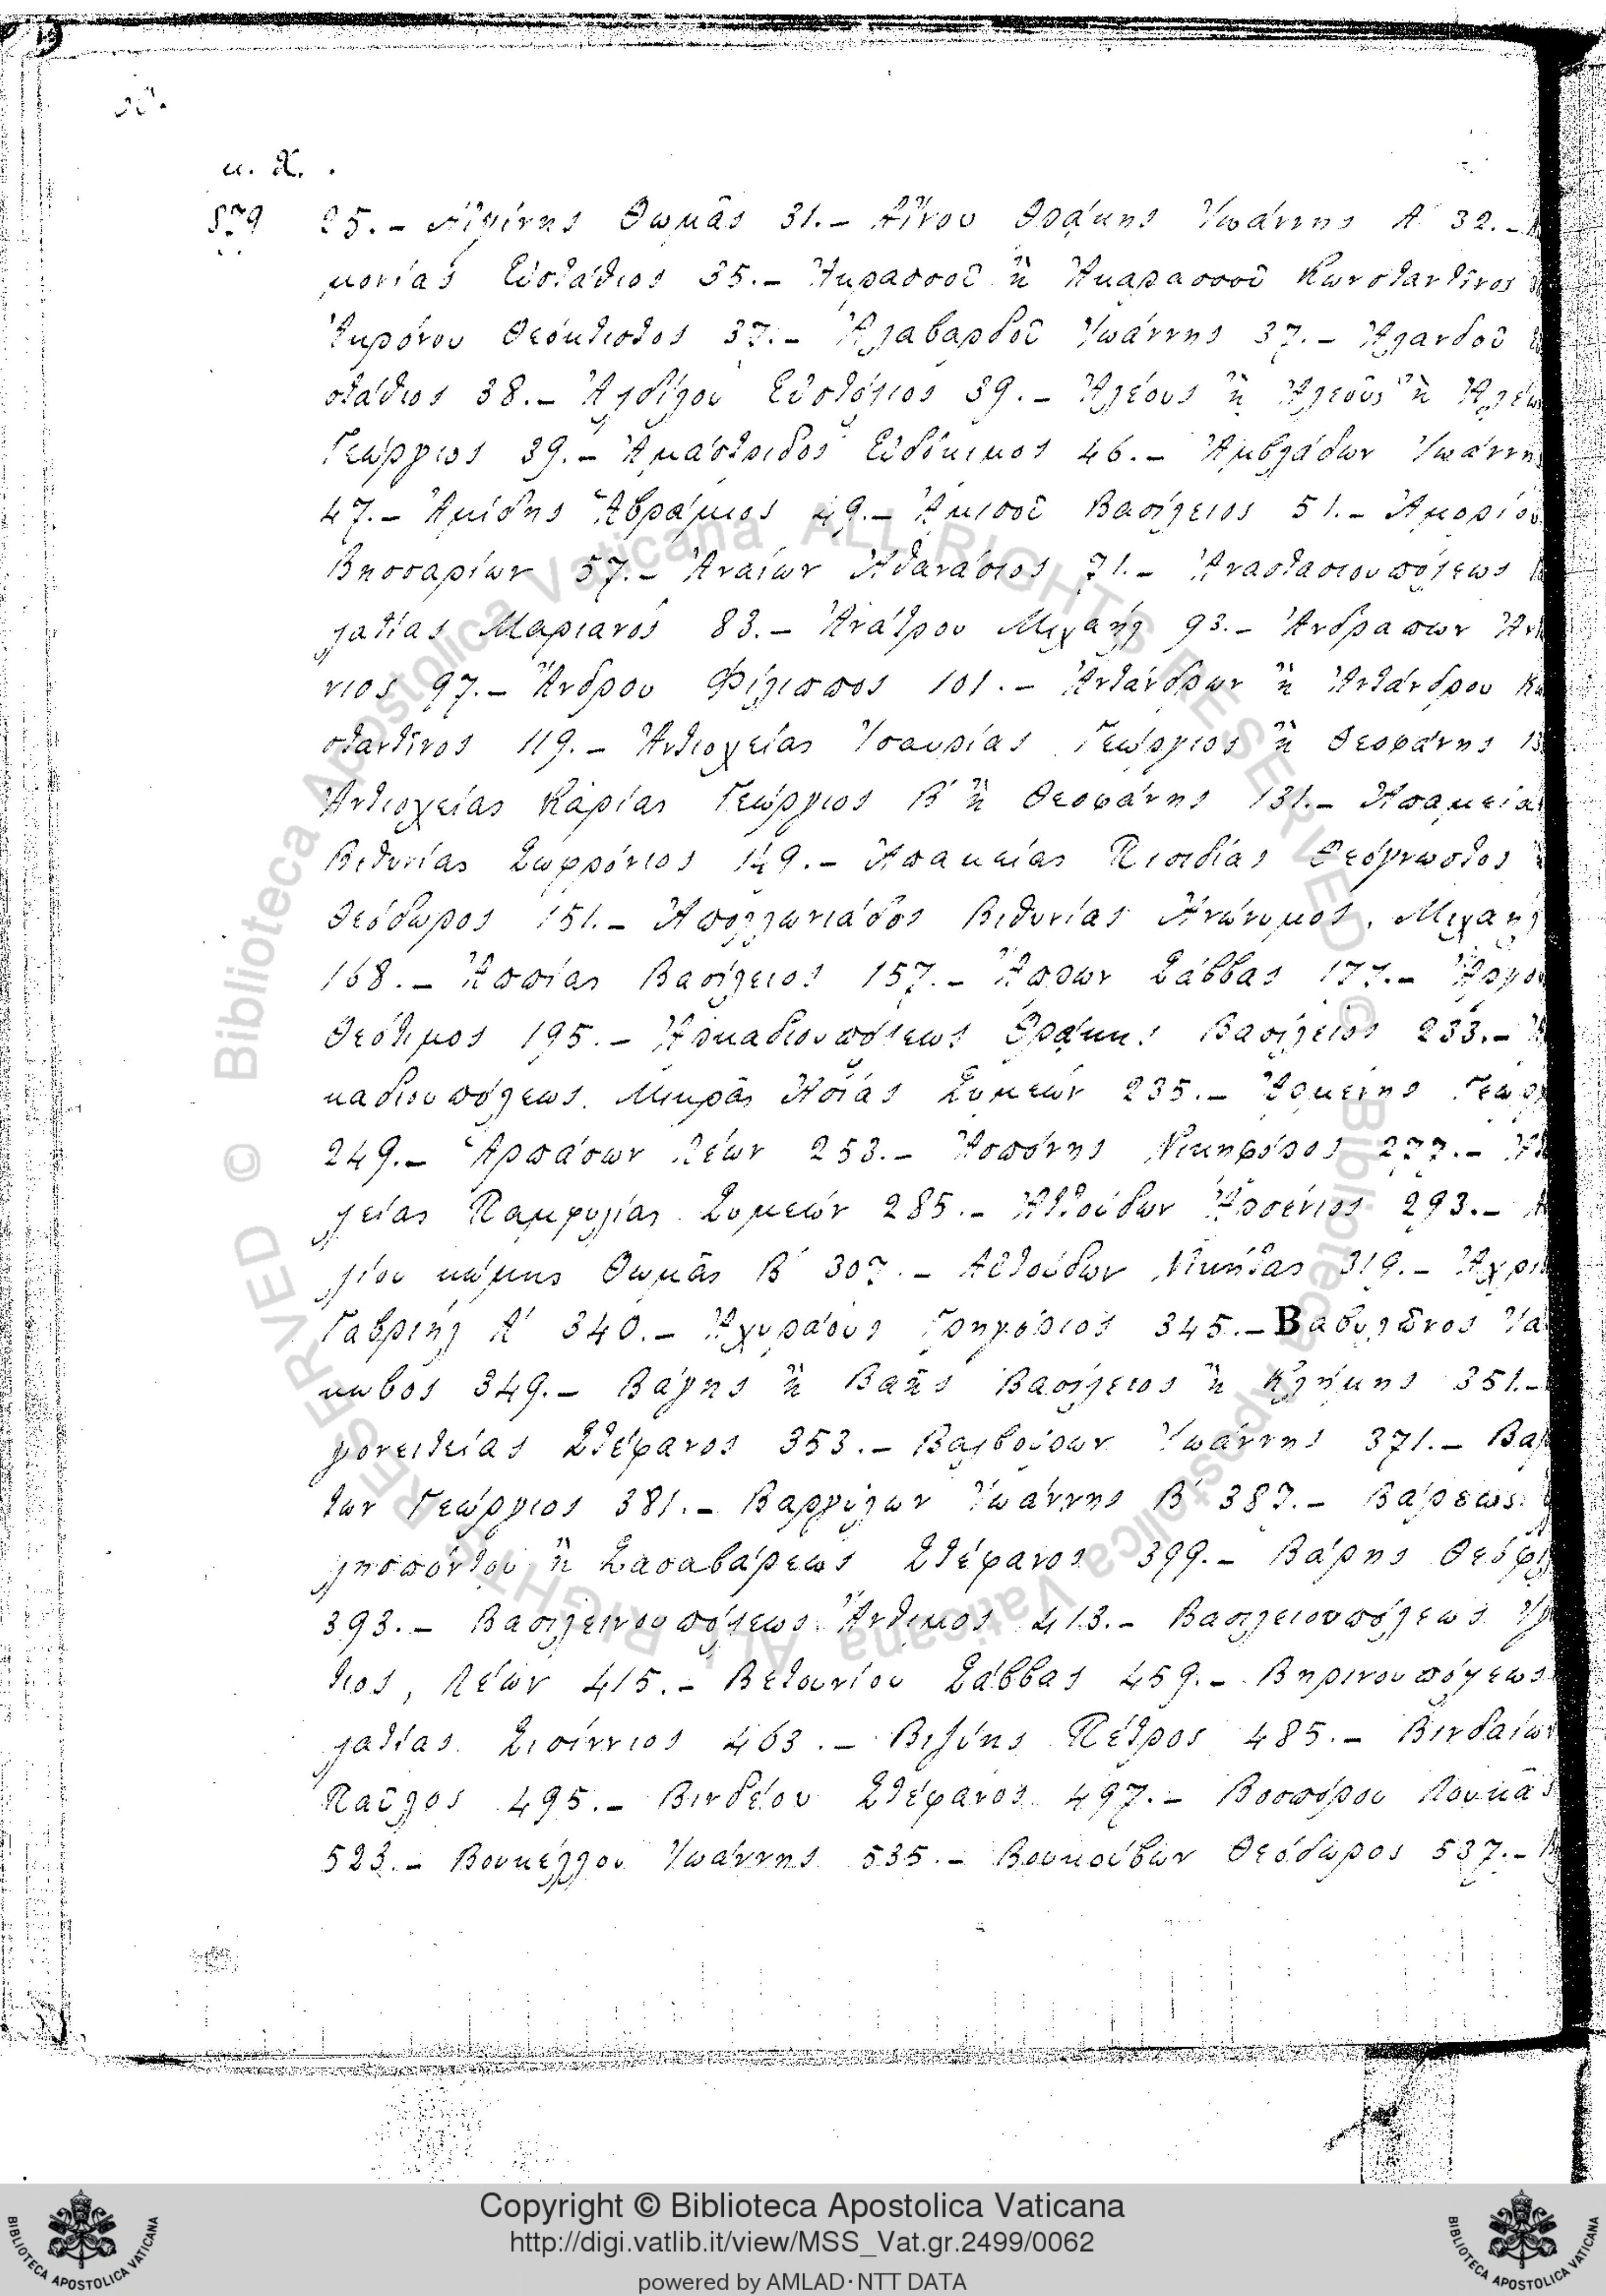 μ. Χ.
879 25.– Αἰγίνης Θωμᾶς 31.– Αἴνου Θράκης Ἰωάννης Α΄ 32.–
μονίας Εὐστάθιος 35.– Ἀκρασσοῦ ἢ Ἀκαρασσοῦ Κωνσταντῖνος
Ἀκρόνου Θεόκτιστος 37.– Ἀλαβαρδοῦ Ἰωάννης 37.– Ἀλανδοῦ
στάθιος 38.– Ἀλδίλου Εὐστόλιος 39.– Ἀλέους ἢ Ἀλεοῦς ἢ
Γεώργιος 39.– Ἀμάστριδος Εὐδόκιμος 46.– Ἀμβλάδων Ἰωάννης
47.– Ἀμίδης Ἀβράμιος 49.– Ἀμισοῦ Βασίλειος 51.– Ἀμορίου
Βησσαρίων 57.– Ἀναίων Ἀθανάσιος 71.– Ἀναστασιουπόλεως
λατίας Μαριανός 83.– Ἀνάτρου Μιχαήλ 93.– Ἀνδραπων
νιος 97.– Ἄνδρου Φίλιππος 101.– Ἀντάνδρων ἢ Ἀντάνδρου Κω
σταντῖνος 119.– Ἀντιοχείας Ἰσαυρίας Γεώργιος ἢ Θεοφάνης
Ἀντιοχείας Καρίας Γεώργιος Β΄ ἢ Θεοφάνης 131.– Ἀπαμείας
Βιθυνίας Σωφρόνιος 149.– Ἀπαμείας Πισιδίας Θεόγνωστος
Θεόδωρος 151.– Ἀπολλωνιάδος Βιθυνίας Ἀνώνυμος, Μιχαήλ
168.– Ἀππίας Βασίλειος 157.– Ἄπρων Σάββας 177.– Ἄργου
Θεότιμος 195.– Ἀρκαδιουπόλεως Θράκης Βασίλειος 233.–
καδιουπόλεως Μικρᾶς Ἀσίας Συμεών 235.– Ἀρμείης Γεώργ
249.– Ἀρπάσων Λέων 253.– Ἀσπόνης Νικηφόρος 277.–
λείας Παμφυλίας Συμεών 285.– Ἀττούδων Ἀρσένιος 293.–
λίου κώμης Θωμᾶς Β΄ 307.– Αὐτούδων Νικήτας 319.– Ἀχρι
Γαβριήλ Α΄ 340.– Ἀχυράους Γρηγόριος 345.– Βαβυλῶνος Ἰά
κωβος 349.– Βάγης ἢ Βαῆς Βασίλειος ἢ Κλήμης 351.–
γονειτείας Στέφανος 353.– Βαλβούρων Ἰωάννης 371.– Βαλ
των Γεώργιος 381.– Βαργύλων Ἰωάννης Β΄ 387.– Βάρεως
λησπόντου ἢ Σασαβάρεως Στέφανος 399.– Βάρης Θεόφι
393.– Βασιλεινουπόλεως Ἄνθιμος 413.– Βασιλειουπόλεως
τιος, Λέων 415.– Βετουνίου Σάββας 459.– Βηρινουπόλεως
λατίας Σισίννιος 463.– Βιζύης Πέτρος 485.– Βινδαίων
Παῦλος 495.– Βινδέου Στέφανος 497.– Βοσπόρου Λουκᾶς
523.– Βουκέλλου Ἰωάννης 535.– Βουκούβων Θεόδωρος 537.–
© Biblioteca Apostolica Vaticana ALL RIGHTS RESERVED © Biblioteca Apostolica Vaticana ALL RIGHTS RESERVED
BIBLIOTECA APOSTOLICA VATICANA
Copyright © Biblioteca Apostolica Vaticana
http://digi.vatlib.it/view/MSS_Vat.gr.2499/0062
powered by AMLAD·NTT DATA
BIBLIOTECA APOSTOLICA VATICANA